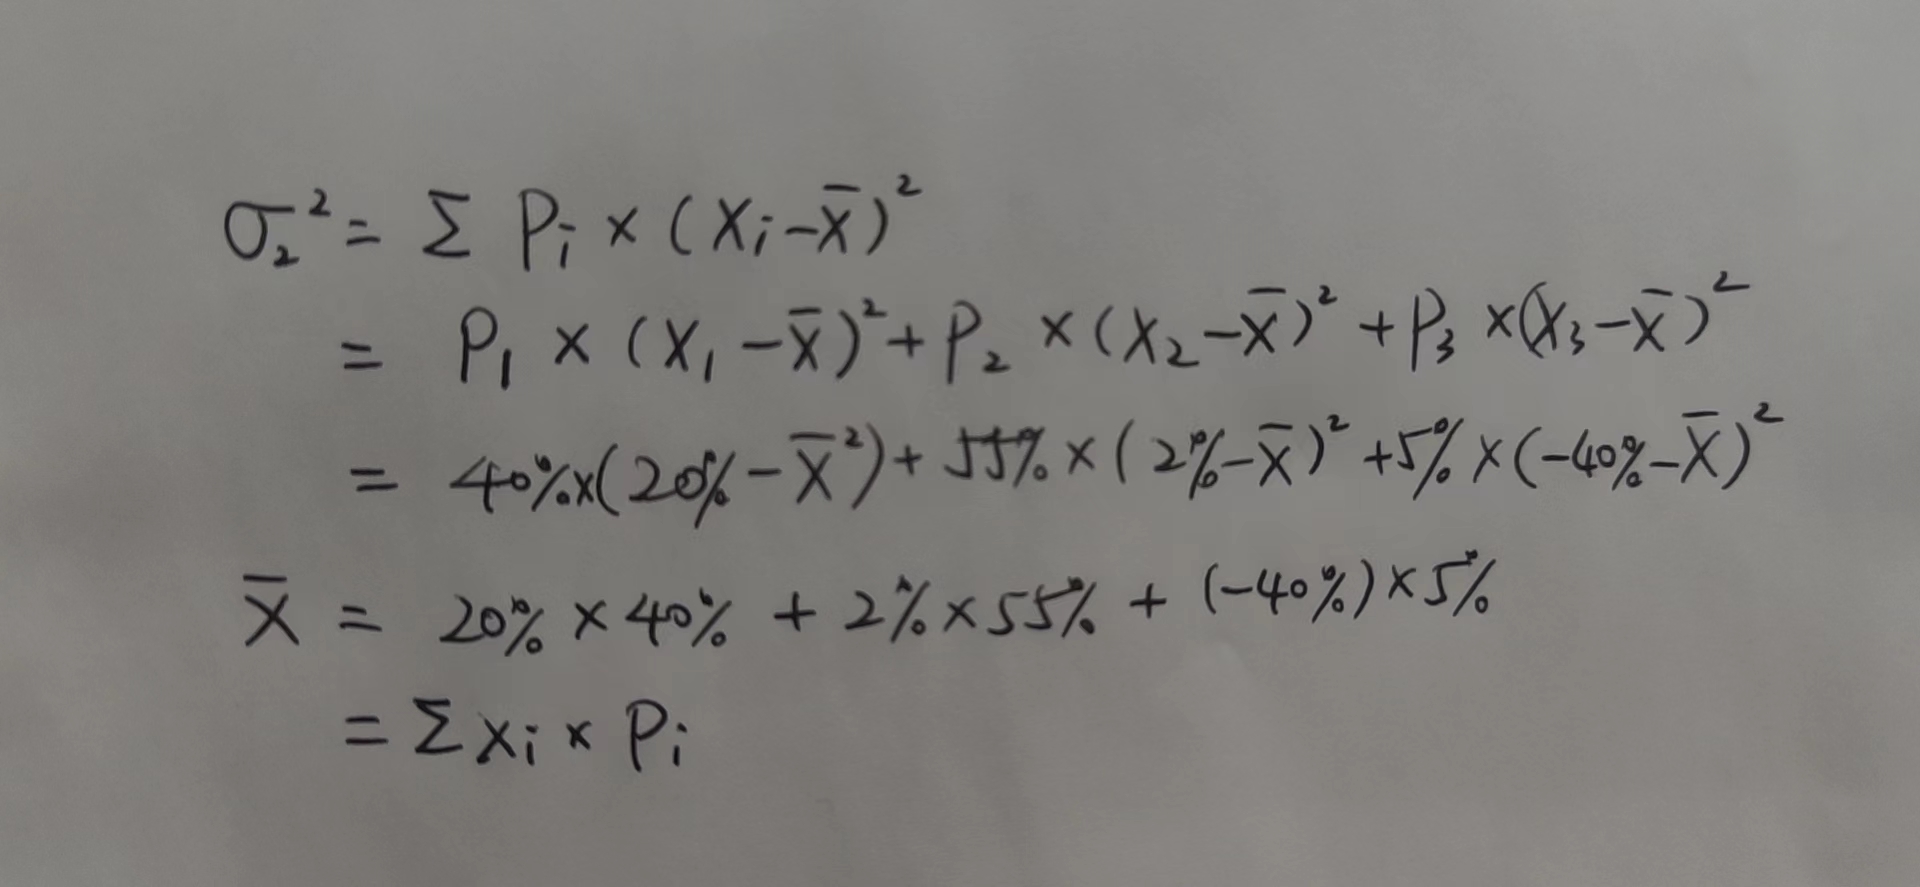 σ₂² = Σ Pᵢ × (Xᵢ-X̄)²
= P₁ × (X₁-X̄)² + P₂ × (X₂-X̄)² + P₃ × (X₃-X̄)²
= 40%×(20%-X̄²) + 55% × (2%-X̄)² + 5% × (-40%-X̄)²
X̄ = 20% × 40% + 2% × 55% + (-40%) × 5%
= Σ Xᵢ × Pᵢ